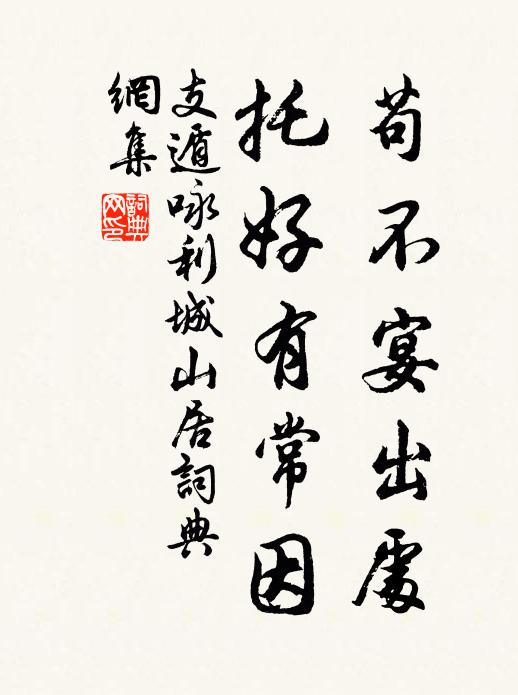 苟不宴出處
托好有常因
支遁咏利城山居詞典
網集
詞典
网印